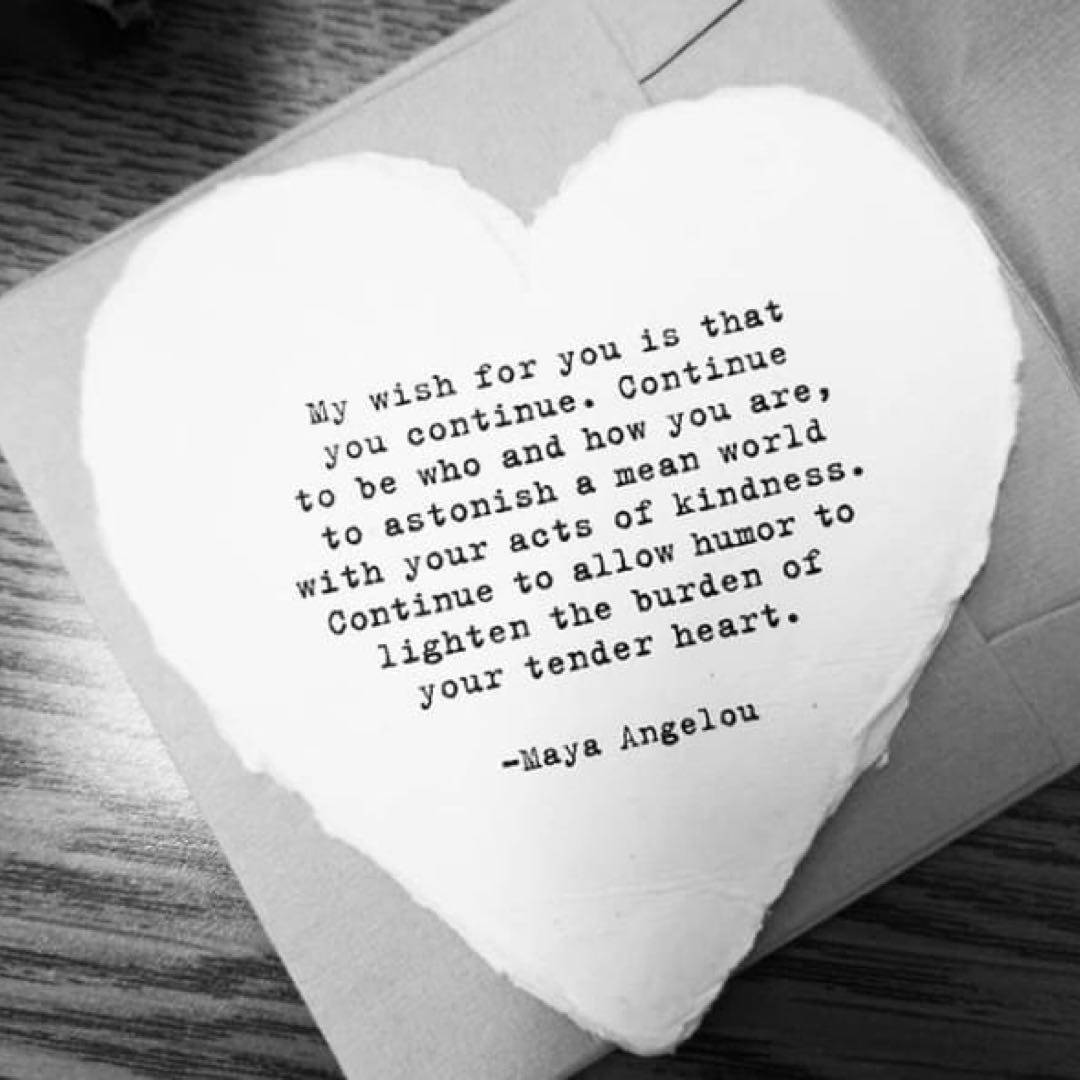 My wish for you is that
you continue. Continue
to be who and how you are,
to astonish a mean world
with your acts of kindness.
Continue to allow humor to
lighten the burden of
your tender heart.
-Maya Angelou